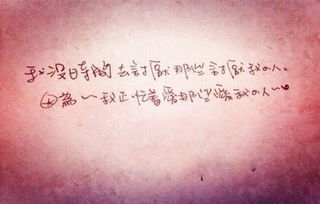 我沒時間去討厭那些討厭我の人。
因為~我正忙着愛那些愛我の人~。